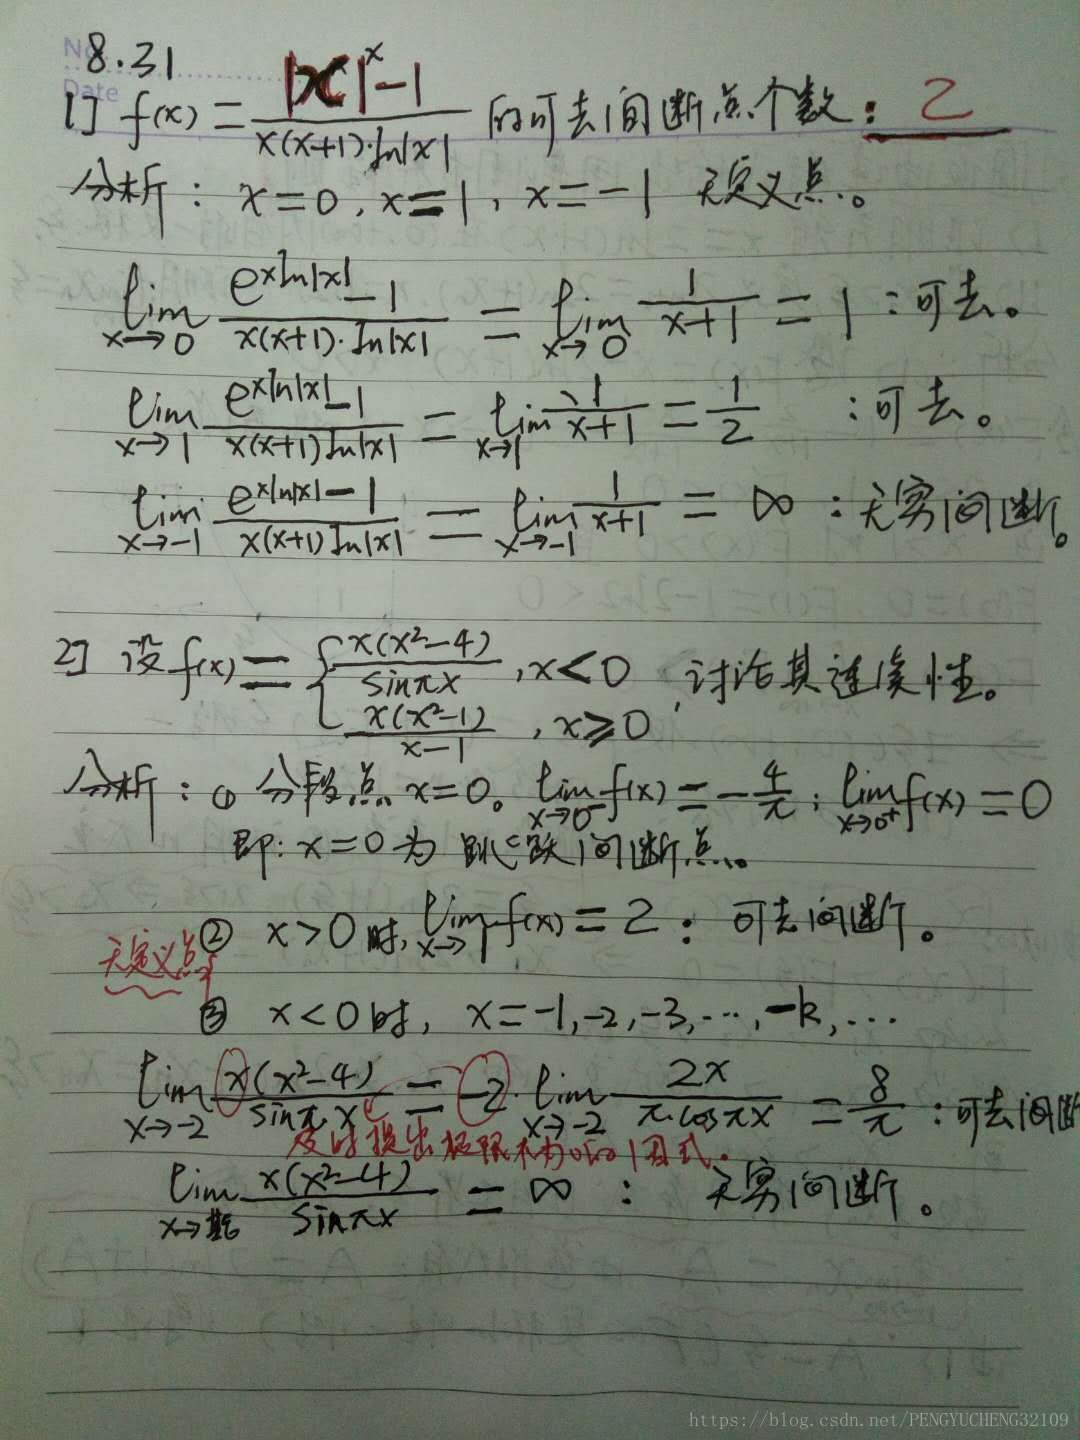 No.
8.31
Date
1] f(x) = (|x|^x - 1)/(x(x+1)·ln|x|) 的可去间断点个数: 2
分析: x=0, x=1, x=-1 无定义点。
lim_{x→0} (e^{xln|x|} - 1)/(x(x+1)·ln|x|) = lim_{x→0} 1/(x+1) = 1 :可去。
lim_{x→1} (e^{xln|x|} - 1)/(x(x+1)ln|x|) = lim_{x→1} 1/(x+1) = 1/2 :可去。
lim_{x→-1} (e^{xln|x|} - 1)/(x(x+1)ln|x|) = lim_{x→-1} 1/(x+1) = ∞ :无穷间断。
2] 设 f(x) = { x(x²-4)/sinπx , x<0 ; x(x²-1)/(x-1) , x≥0 , 讨论其连续性。
分析: ① 分段点 x=0。 lim_{x→0⁻} f(x) = -4/π ; lim_{x→0⁺} f(x) = 0
即: x=0 为 跳跃间断点。
② x>0 时, lim_{x→1} f(x) = 2 : 可去间断。
无定义点
③ x<0 时, x=-1,-2,-3,…,-k,…
lim_{x→-2} x(x²-4)/sinπx = -2·lim_{x→-2} 2x/(π·cosπx) = 8/π :可去间断
及时提出极限不为0的因式。
lim_{x→其它} x(x²-4)/sinπx = ∞ : 无穷间断。
https://blog.csdn.net/PENGYUCHENG32109